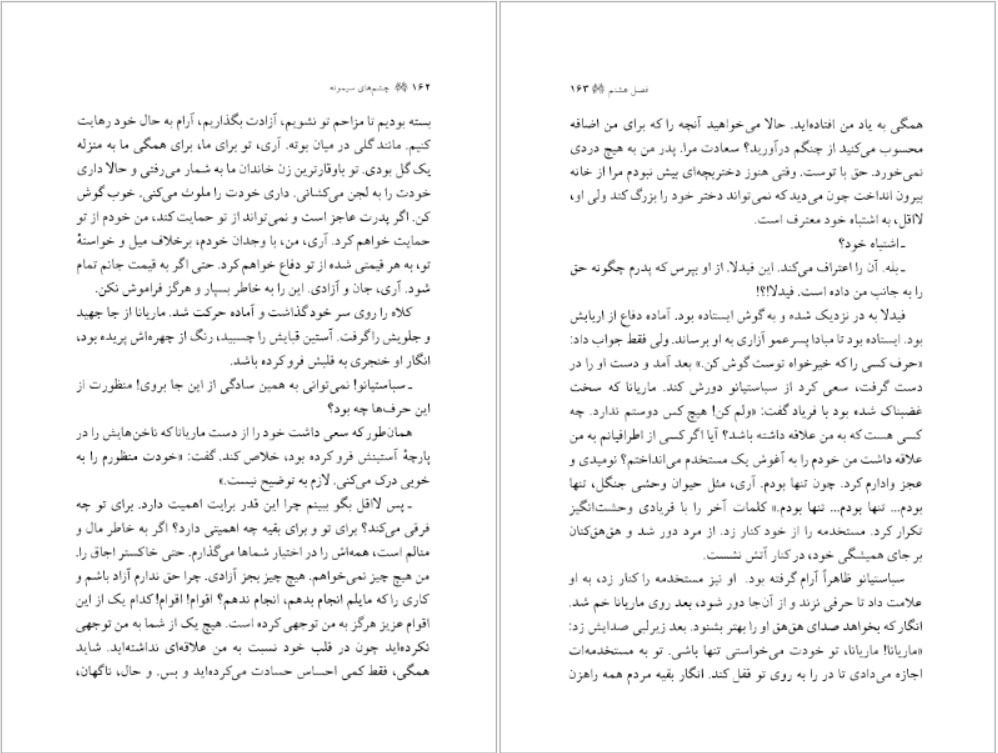 ۱۶۲ چشم‌های سیمونه
بسته بودیم تا مزاحم تو نشویم، آزادت بگذاریم، آرام به حال خود رهایت
کنیم. مانند گلی در میان بوته. آری، تو برای ما، برای همگی ما به منزله
یک گل بودی. تو باوقارترین زن خاندان ما به شمار می‌رفتی و حالا داری
خودت را به لجن می‌کشانی. داری خودت را ملوث می‌کنی. خوب گوش
کن. اگر پدرت عاجز است و نمی‌تواند از تو حمایت کند، من خودم از تو
حمایت خواهم کرد. آری، من، با وجدان خودم، برخلاف میل و خواستهٔ
تو، به هر قیمتی شده از تو دفاع خواهم کرد. حتی اگر به قیمت جانم تمام
شود. آری، جان و آزادی. این را به خاطر بسپار و هرگز فراموش نکن.
کلاه را روی سر خود گذاشت و آماده حرکت شد. ماریانا از جا جهید
و جلویش را گرفت. آستین قبایش را چسبید، رنگ از چهره‌اش پریده بود،
انگار او خنجری به قلبش فرو کرده باشد.
ـ سباستیانو! نمی‌توانی به همین سادگی از این جا بروی! منظورت از
این حرف‌ها چه بود؟
همان‌طور که سعی داشت خود را از دست ماریانا که ناخن‌هایش را در
پارچهٔ آستینش فرو کرده بود، خلاص کند. گفت: «خودت منظورم را به
خوبی درک می‌کنی. لازم به توضیح نیست.»
ـ پس لااقل بگو ببینم چرا این قدر برایت اهمیت دارد. برای تو چه
فرقی می‌کند؟ برای تو و برای بقیه چه اهمیتی دارد؟ اگر به خاطر مال و
منالم است، همه‌اش را در اختیار شماها می‌گذارم. حتی خاکستر اجاق را.
من هیچ چیز نمی‌خواهم. هیچ چیز بجز آزادی. چرا حق ندارم آزاد باشم و
کاری را که مایلم انجام بدهم، انجام ندهم؟ اقوام! اقوام! کدام یک از این
اقوام عزیز هرگز به من توجهی کرده است. هیچ یک از شما به من توجهی
نکرده‌اید چون در قلب خود نسبت به من علاقه‌ای نداشته‌اید. شاید
همگی، فقط کمی احساس حسادت می‌کرده‌اید و بس. و حال، ناگهان،
فصل هشتم ۱۶۳
همگی به یاد من افتاده‌اید. حالا می‌خواهید آنچه را که برای من اضافه
محسوب می‌کنید از چنگم درآورید؟ سعادت مرا. پدر من به هیچ دردی
نمی‌خورد. حق با توست. وقتی هنوز دختربچه‌ای بیش نبودم مرا از خانه
بیرون انداخت چون می‌دید که نمی‌تواند دختر خود را بزرگ کند ولی او،
لااقل، به اشتباه خود معترف است.
ـ اشتباه خود؟
ـ بله. آن را اعتراف می‌کند. این فیدلا. از او بپرس که پدرم چگونه حق
را به جانب من داده است. فیدلا!؟!
فیدلا به در نزدیک شده و به گوش ایستاده بود. آماده دفاع از اربابش
بود. ایستاده بود تا مبادا پسرعمو آزاری به او برساند. ولی فقط جواب داد:
«حرف کسی را که خیرخواه توست گوش کن.» بعد آمد و دست او را در
دست گرفت، سعی کرد از سباستیانو دورش کند. ماریانا که سخت
غضبناک شده بود با فریاد گفت: «ولم کن! هیچ کس دوستم ندارد. چه
کسی هست که به من علاقه داشته باشد؟ آیا اگر کسی از اطرافیانم به من
علاقه داشت من خودم را به آغوش یک مستخدم می‌انداختم؟ نومیدی و
عجز وادارم کرد. چون تنها بودم. آری، مثل حیوان وحشی جنگل، تنها
بودم... تنها بودم... تنها بودم.» کلمات آخر را با فریادی وحشت‌انگیز
تکرار کرد. مستخدمه را از خود کنار زد. از مرد دور شد و هق‌هق‌کنان
بر جای همیشگی خود، در کنار آتش نشست.
سباستیانو ظاهراً آرام گرفته بود. او نیز مستخدمه را کنار زد، به او
علامت داد تا حرفی نزند و از آن‌جا دور شود، بعد روی ماریانا خم شد.
انگار که بخواهد صدای هق‌هق او را بهتر بشنود. بعد زیرلبی صدایش زد:
«ماریانا! ماریانا، تو خودت می‌خواستی تنها باشی. تو به مستخدمه‌ات
اجازه می‌دادی تا در را به روی تو قفل کند. انگار بقیه مردم همه راهزن